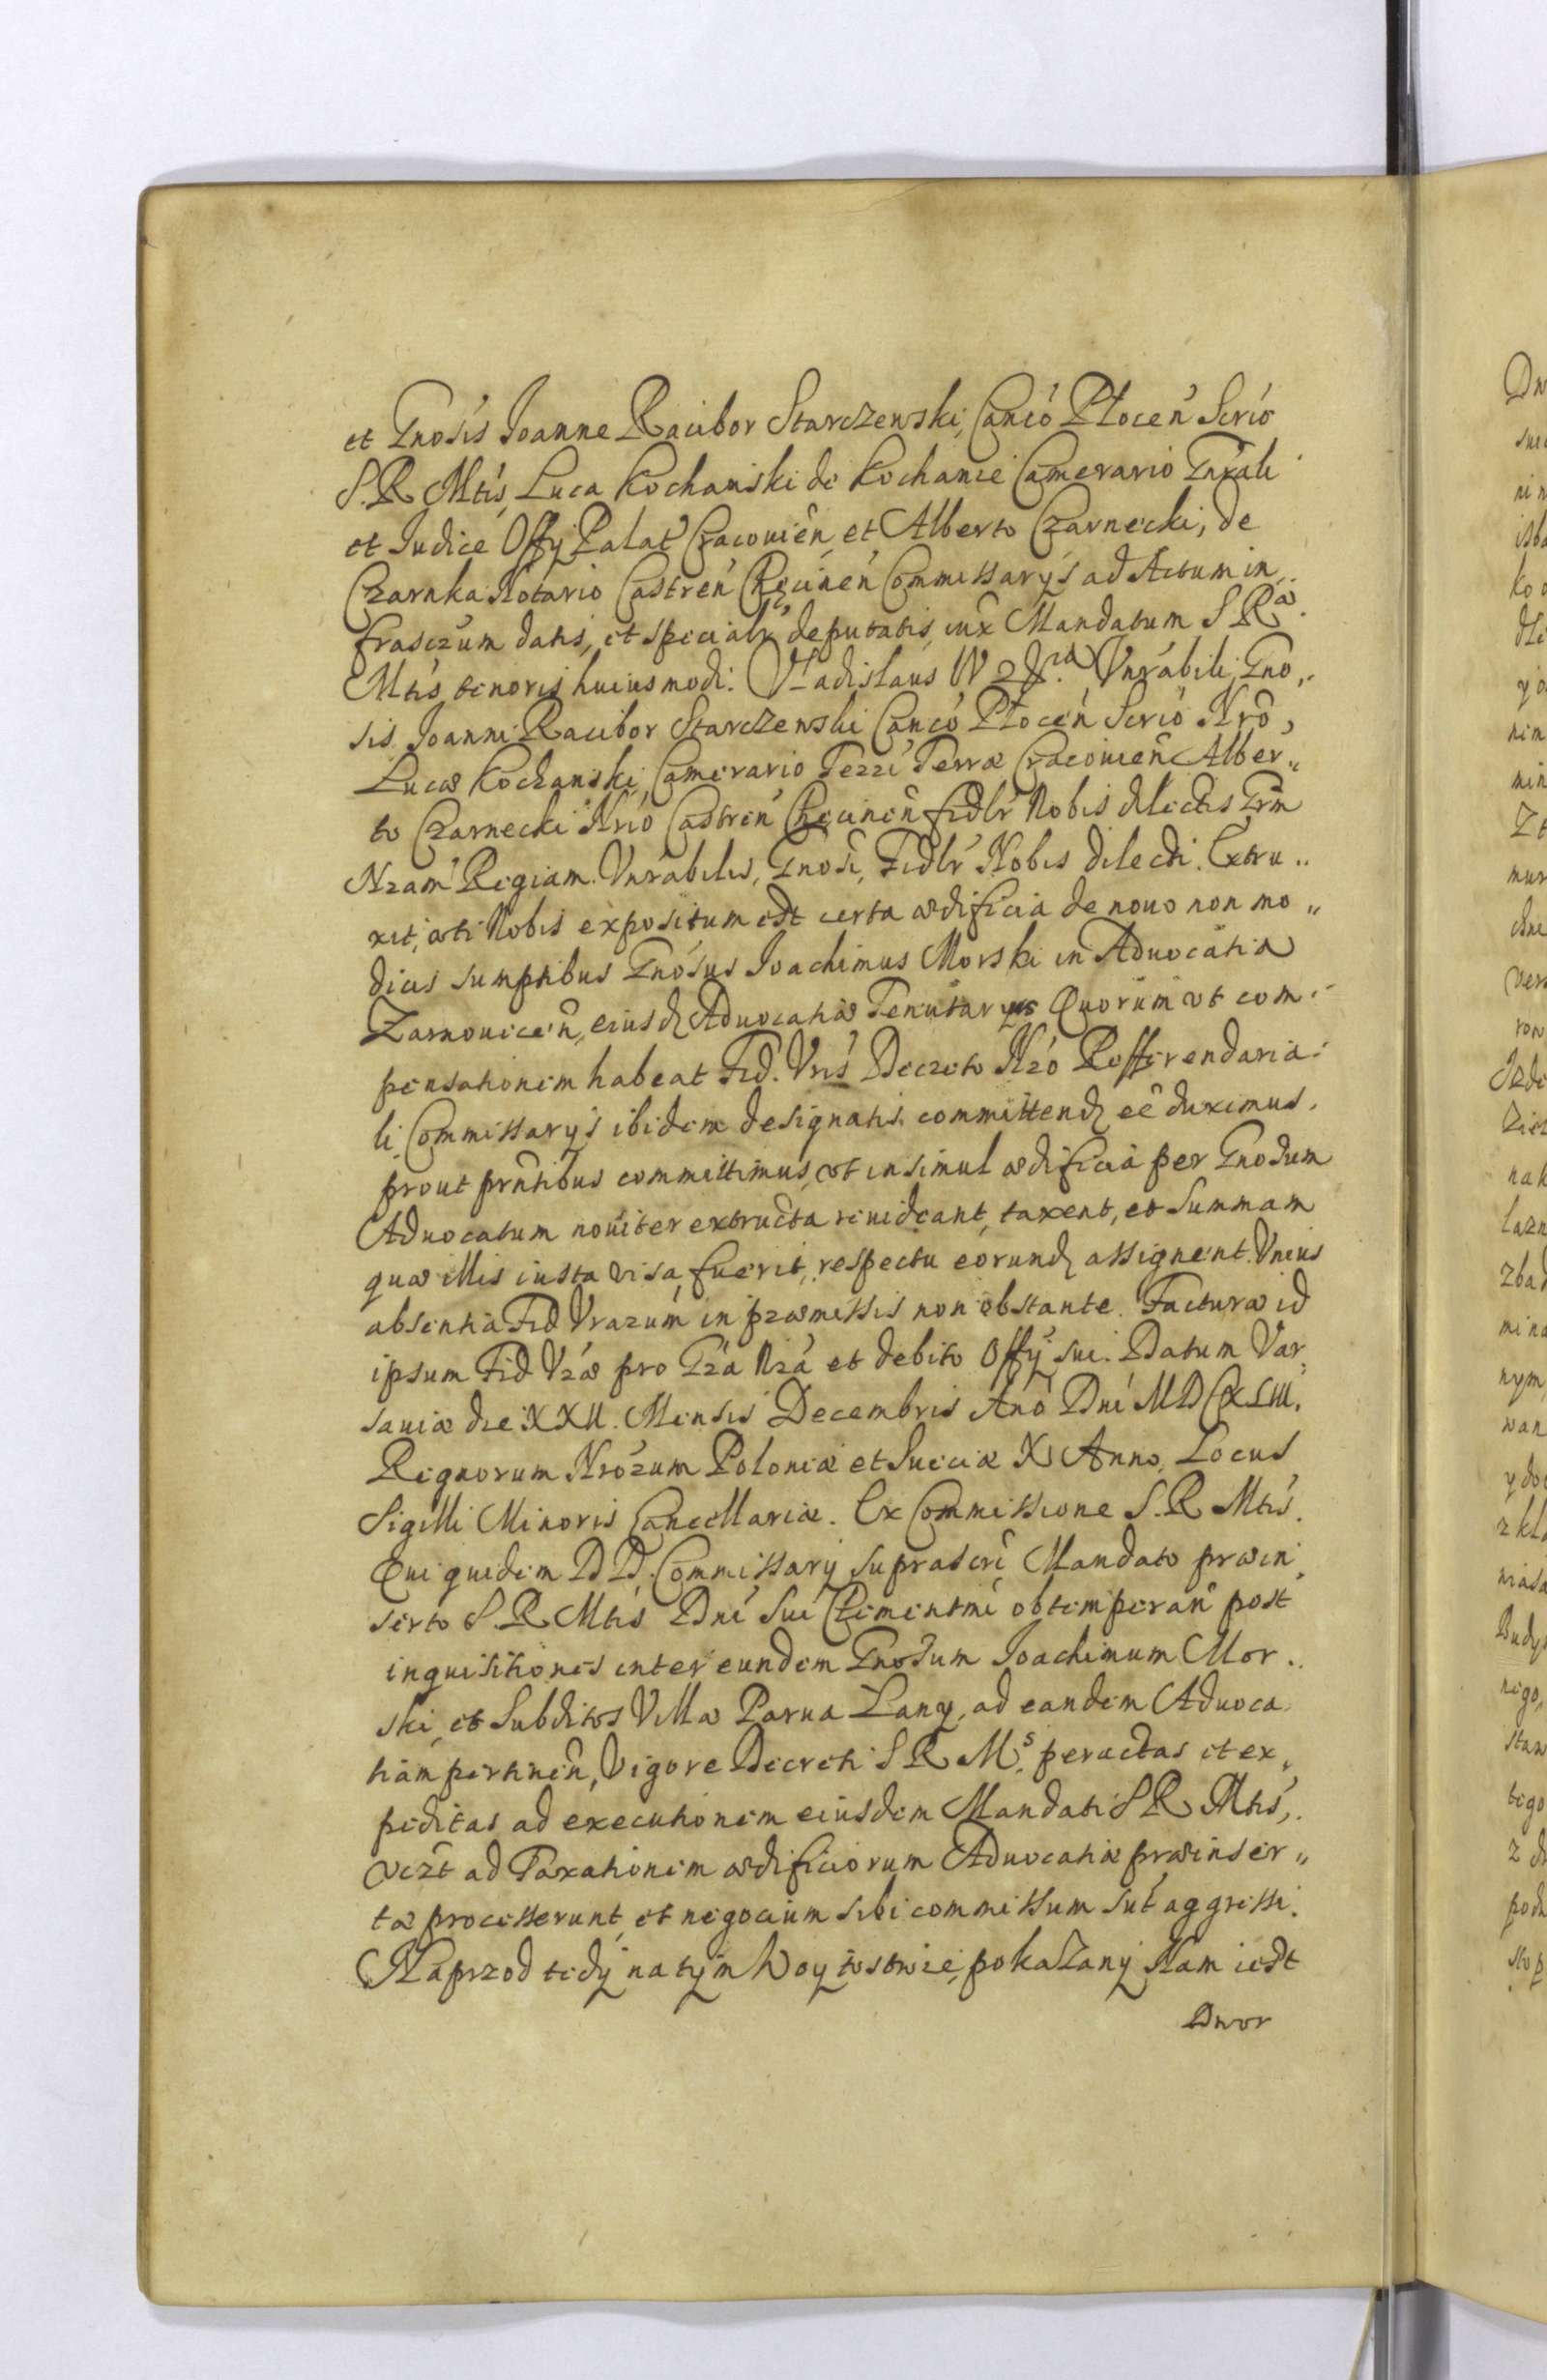 et Gnosis Joanne Racibor Starczewski, Canco Plocen Scrio
S. R. Mtis, Luca Kochanski de Kochanie Camerario Gnrali
et Judice Offy Palat Cracouien, et Alberto Czarnecki, de
Czarnka Notario Castren Checinen Commissarys ad Actum in„
frascrum datis, et specialr deputatis, iux Mandatum S R
Mtis tenoris huiusmodi. Vladislaus IV Vnrabili, Gno„
sis Joanni Racibor Starczewski Canco Plocen Scrio Nro,
Lucæ Kochanski, Camerario Terræ Cracouien Alber„
to Czarnecki Nrio Castren Checinen fidlr Nobis dilectis Grm
Nram Regiam. Vnrabilis, Gnosi, Fidlr Nobis dilecti. Extru„
xit, vti Nobis expositum est certa ædificia de nouo non mo„
dicis sumptibus Gnosus Joachimus Morski in Aduocatia
Zarnouicen, eiusd Aduocatiæ Tenutarius Quorum vt com„
pensationem habeat Fid. Vris Decreto Nro Refferendaria„
li, Commissarys ibidem designatis. committend eê duximus,
prout prntibus committimus, vt insimul ædificia per Gnosum
Aduocatum nouiter extructa reuideant, taxent, et Summam
quæ illis iusta visa fuerit, respectu eorund assignent. Vnius
absentia Fid Vrarum in præmissis non obstante. Facturæ id
ipsum Fid Vræ pro Gra Nra et debito Offy sui. Datum Var„
sauiæ die XXII. Mensis Decembris Ano Dni MDCXLIII.
Regnorum Nrorum Poloniæ et Sueciæ XI Anno. Locus
Sigilli Minoris Cancellariæ. Ex Commissione S. R. Mtis.
Qui quidem D D. Commissary suprascri Mandato præin„
serto S. R. Mtis Dni Sui Clementmi obtemperan post
inquisitiones inter eundem Gnosum Joachimum Mor„
ski, et Subditos Villæ Parua Lany, ad eandem Aduoca„
tiam pertinen, Vigore Decreti S R M.s peractas et ex„
peditas ad executionem eiusdem Mandati S R Mtis,
vczt ad Taxationem ædificiorum Aduocatiæ præinser„
tæ processerunt, et negocium sibi commissum sut aggressi.
Naprzod tedy na tym Woytostwie, pokazany Nam iest
Dwor